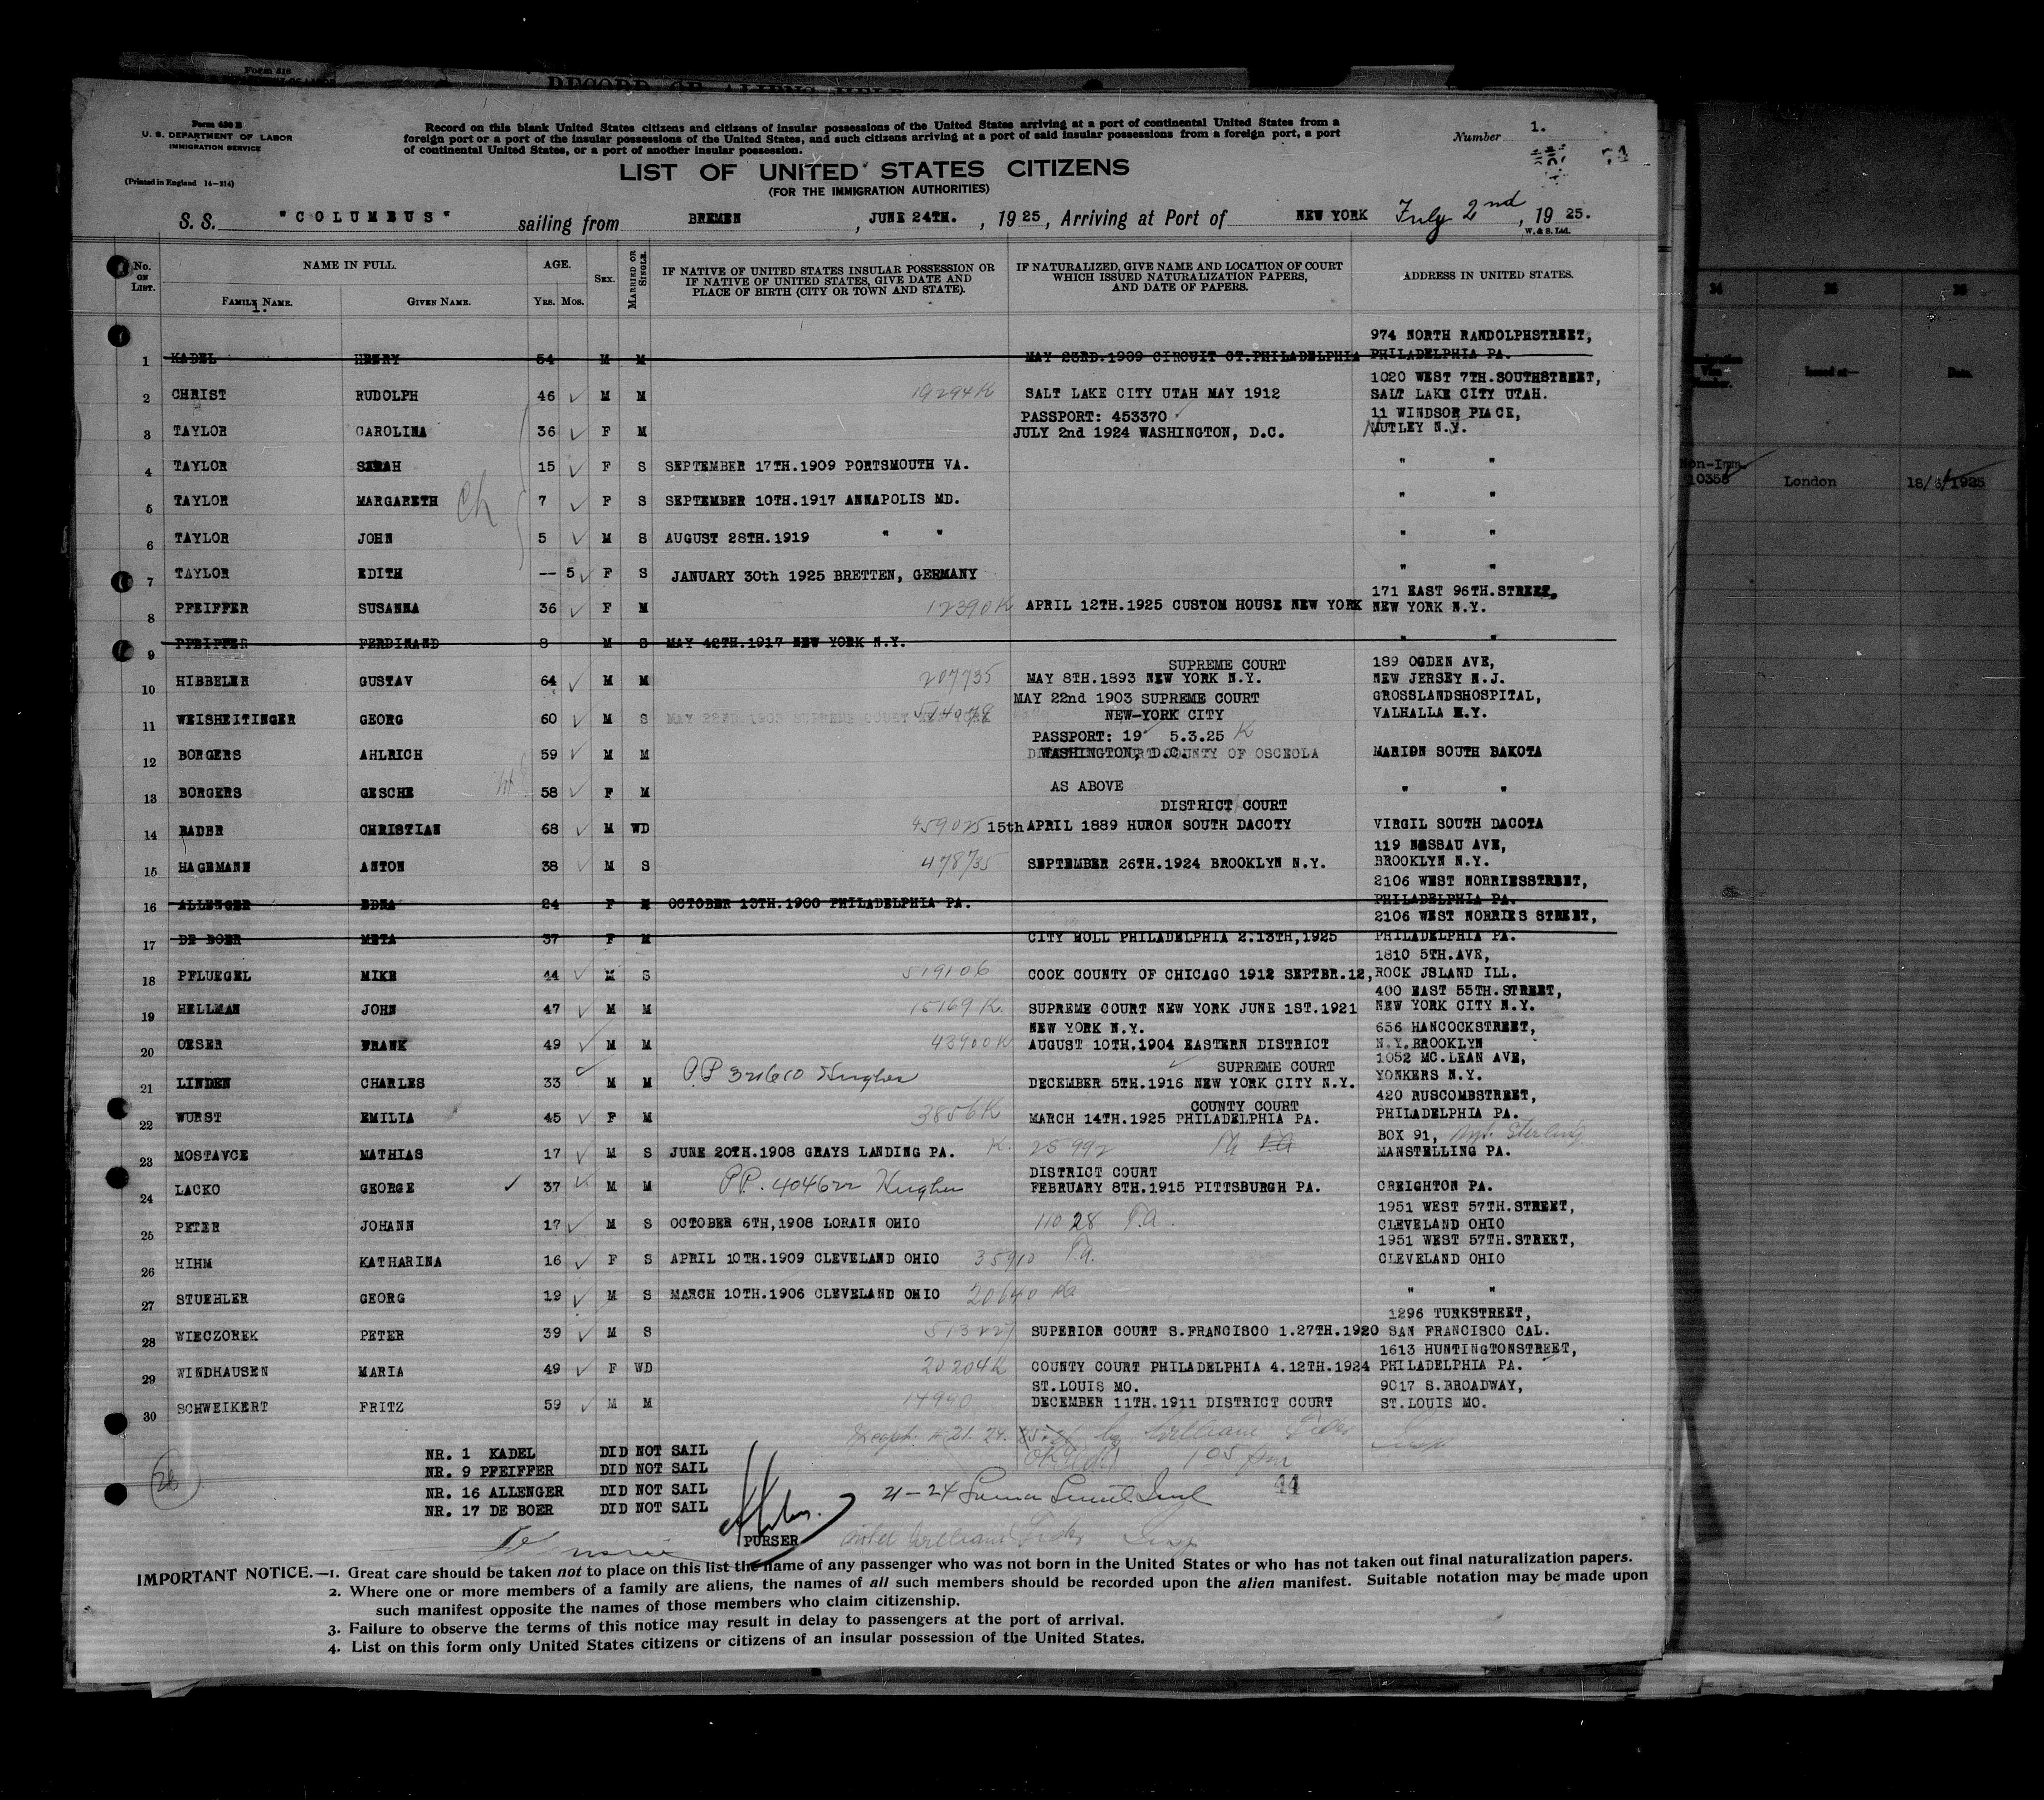 Form 630 B
U. S. DEPARTMENT OF LABOR
IMMIGRATION SERVICE
(Printed in England 14—214)
Record on this blank United States citizens and citizens of insular possessions of the United States arriving at a port of continental United States from a
foreign port or a port of the insular possessions of the United States, and such citizens arriving at a port of said insular possessions from a foreign port, a port
of continental United States, or a port of another insular possession.
Number 1.
LIST OF UNITED STATES CITIZENS
(FOR THE IMMIGRATION AUTHORITIES)
S. S. "COLUMBUS" sailing from BREMEN, JUNE 24TH., 1925, Arriving at Port of NEW YORK July 2nd, 1925.
W. & S. Ltd.
No. ON LIST. NAME IN FULL. AGE. SEX. MARRIED OR SINGLE. IF NATIVE OF UNITED STATES INSULAR POSSESSION OR IF NATIVE OF UNITED STATES, GIVE DATE AND PLACE OF BIRTH (CITY OR TOWN AND STATE). IF NATURALIZED, GIVE NAME AND LOCATION OF COURT WHICH ISSUED NATURALIZATION PAPERS, AND DATE OF PAPERS. ADDRESS IN UNITED STATES.
FAMILY NAME. GIVEN NAME. YRS. MOS.
1.
974 NORTH RANDOLPHSTREET,
1 KADEL HENRY 54 M M MAY 23RD.1909 CIRCUIT CT.PHILADELPHIA PHILADELPHIA PA.
1020 WEST 7TH.SOUTHSTREET,
2 CHRIST RUDOLPH 46 M M 19294K SALT LAKE CITY UTAH MAY 1912 SALT LAKE CITY UTAH.
PASSPORT: 453370 11 WINDSOR PLACE,
3 TAYLOR CAROLINA 36 F M JULY 2nd 1924 WASHINGTON, D.C. NUTLEY N.Y.
4 TAYLOR SARAH 15 F S SEPTEMBER 17TH.1909 PORTSMOUTH VA. " "
5 TAYLOR MARGARETH Ch 7 F S SEPTEMBER 10TH.1917 ANNAPOLIS MD. " "
6 TAYLOR JOHN 5 M S AUGUST 28TH.1919 " " " "
7 TAYLOR EDITH -- 5 F S JANUARY 30th 1925 BRETTEN, GERMANY " "
171 EAST 96TH.STREET,
8 PFEIFFER SUSANNA 36 F M 12390K APRIL 12TH.1925 CUSTOM HOUSE NEW YORK NEW YORK N.Y.
9 PFEIFFER FERDINAND 8 M S MAY 12TH.1917 NEW YORK N.Y. " "
SUPREME COURT 189 OGDEN AVE,
10 HIBBELER GUSTAV 64 M M 207735 MAY 8TH.1893 NEW YORK N.Y. NEW JERSEY N.J.
MAY 22nd 1903 SUPREME COURT GROSSLANDSHOSPITAL,
11 WEISHEITINGER GEORG 60 M S NEW-YORK CITY VALHALLA N.Y.
PASSPORT: 19 5.3.25 K
12 BORGERS AHLRICH 59 M M WASHINGTON, D.C. COUNTY OF OSCEOLA MARION SOUTH DAKOTA
13 BORGERS GESCHE 58 F M AS ABOVE " "
DISTRICT COURT
14 BADER CHRISTIAN 68 M WD 459025 15th APRIL 1889 HURON SOUTH DACOTY VIRGIL SOUTH DACOTA
119 NESSAU AVE,
15 HAGEMANN ANTON 38 M S 478735 SEPTEMBER 26TH.1924 BROOKLYN N.Y. BROOKLYN N.Y.
2106 WEST NORRIESSTREET,
16 ALLENGER EDNA 24 F M OCTOBER 13TH.1900 PHILADELPHIA PA. PHILADELPHIA PA.
2106 WEST NORRIES STREET,
17 DE BOER META 37 F M CITY HOLL PHILADELPHIA 2.13TH,1925 PHILADELPHIA PA.
1810 5TH.AVE,
18 PFLUEGEL MIKE 44 M S 519106 COOK COUNTY OF CHICAGO 1912 SEPTBR.12, ROCK JSLAND ILL.
400 EAST 55TH.STREET,
19 HELLMAN JOHN 47 M M 15169K. SUPREME COURT NEW YORK JUNE 1ST.1921 NEW YORK CITY N.Y.
NEW YORK N.Y. 656 HANCOCKSTREET,
20 OESER FRANK 49 M M 43900K AUGUST 10TH.1904 EASTERN DISTRICT N.Y.BROOKLYN
SUPREME COURT 1052 MC.LEAN AVE,
21 LINDEN CHARLES 33 M M P.P 321610 Hughes DECEMBER 5TH.1916 NEW YORK CITY N.Y. YONKERS N.Y.
COUNTY COURT 420 RUSCOMBSTREET,
22 WURST EMILIA 45 F M 3856K MARCH 14TH.1925 PHILADELPHIA PA. PHILADELPHIA PA.
BOX 91, Mt. Sterling
23 MOSTAVCE MATHIAS 17 M S JUNE 20TH.1908 GRAYS LANDING PA. K. 25992 MANSTELLING PA.
DISTRICT COURT
24 LACKO GEORGE 37 M M P.P. 404622 Hughes FEBRUARY 8TH.1915 PITTSBURGH PA. CREIGHTON PA.
1951 WEST 57TH.STREET,
25 PETER JOHANN 17 M S OCTOBER 6TH,1908 LORAIN OHIO 11028 P.a. CLEVELAND OHIO
1951 WEST 57TH.STREET,
26 HIHM KATHARINA 16 F S APRIL 10TH.1909 CLEVELAND OHIO 35910 P.a. CLEVELAND OHIO
27 STUEHLER GEORG 19 M S MARCH 10TH.1906 CLEVELAND OHIO 20640 " "
1296 TURKSTREET,
28 WIECZOREK PETER 39 M S 513227 SUPERIOR COURT S.FRANCISCO 1.27TH.1920 SAN FRANCISCO CAL.
1613 HUNTINGTONSTREET,
29 WINDHAUSEN MARIA 49 F WD 20204K COUNTY COURT PHILADELPHIA 4.12TH.1924 PHILADELPHIA PA.
ST.LOUIS MO. 9017 S.BROADWAY,
30 SCHWEIKERT FRITZ 59 M M 14990 DECEMBER 11TH.1911 DISTRICT COURT ST.LOUIS MO.
NR. 1 KADEL DID NOT SAIL
NR. 9 PFEIFFER DID NOT SAIL
NR. 16 ALLENGER DID NOT SAIL
NR. 17 DE BOER DID NOT SAIL
26
21-24
44
PURSER
IMPORTANT NOTICE.—1. Great care should be taken not to place on this list the name of any passenger who was not born in the United States or who has not taken out final naturalization papers.
2. Where one or more members of a family are aliens, the names of all such members should be recorded upon the alien manifest. Suitable notation may be made upon
such manifest opposite the names of those members who claim citizenship.
3. Failure to observe the terms of this notice may result in delay to passengers at the port of arrival.
4. List on this form only United States citizens or citizens of an insular possession of the United States.
34 35 36
Issued at— Date.
Non-Imm.
10358 London 18/6/1925